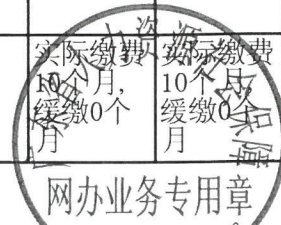 实际缴费
10个月,
缓缴0个
月
实际缴费
10个月,
缓缴0个
月
人力资源
保障
网办业务专用章